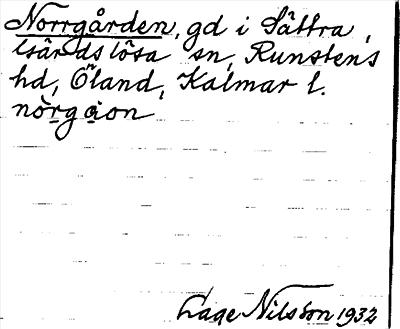 Norrgården, gd i Sättra,
Gärdslösa sn, Runstens
hd, Öland, Kalmar l.
nòrgáon
Lage Nilsson 1932